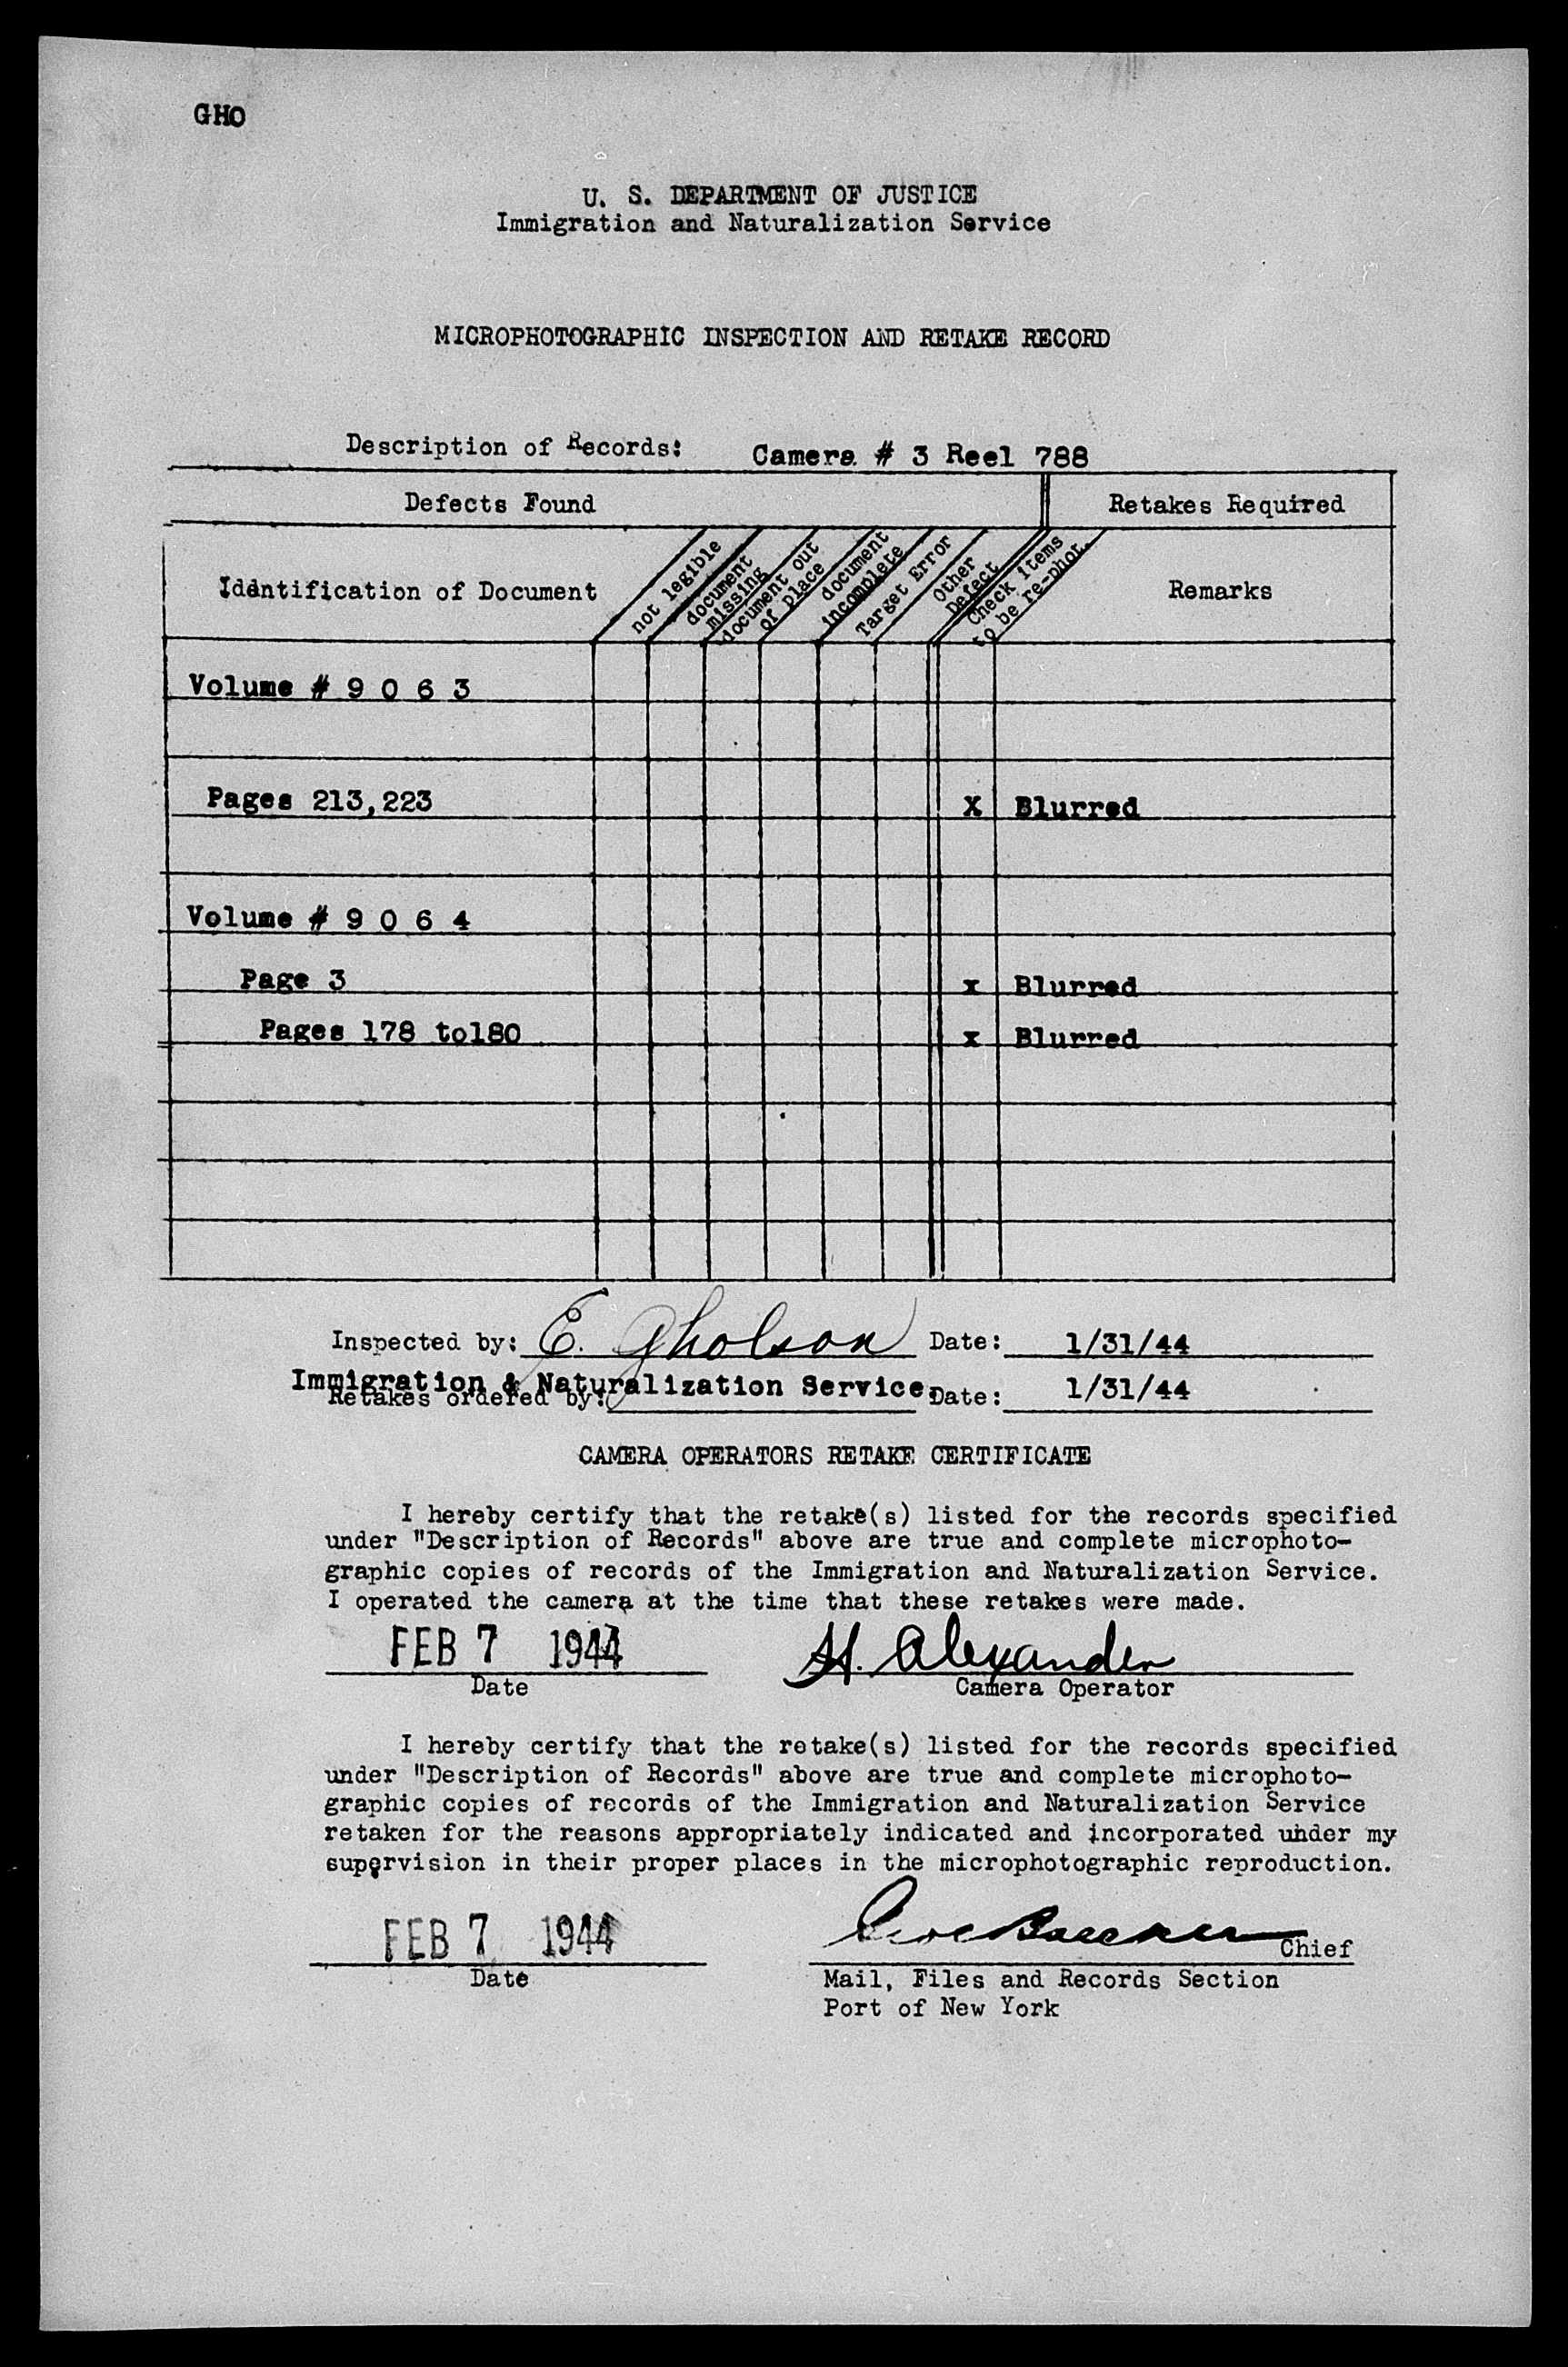 GHO
U. S. DEPARTMENT OF JUSTICE
Immigration and Naturalization Service
MICROPHOTOGRAPHIC INSPECTION AND RETAKE RECORD
Description of Records: Camera # 3 Reel 788
Defects Found Retakes Required
Identification of Document
not legible
document missing
document out of place
document incomplete
Target Error
Other Defect
Check items to be re-phot.
Remarks
Volume # 9 0 6 3
Pages 213,223 X Blurred
Volume # 9 0 6 4
Page 3 x Blurred
Pages 178 to180 x Blurred
Inspected by: E. Gholson Date: 1/31/44
Immigration & Naturalization Service.
Retakes ordered by: Date: 1/31/44
CAMERA OPERATORS RETAKE CERTIFICATE
I hereby certify that the retake(s) listed for the records specified
under "Description of Records" above are true and complete microphoto-
graphic copies of records of the Immigration and Naturalization Service.
I operated the camera at the time that these retakes were made.
FEB 7 1944 H. Alexander
Date Camera Operator
I hereby certify that the retake(s) listed for the records specified
under "Description of Records" above are true and complete microphoto-
graphic copies of records of the Immigration and Naturalization Service
retaken for the reasons appropriately indicated and incorporated under my
supervision in their proper places in the microphotographic reproduction.
FEB 7 1944 Chief
Date Mail, Files and Records Section
Port of New York